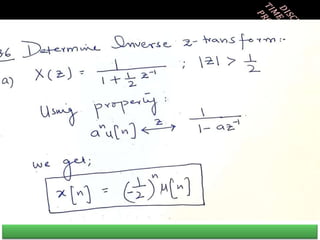 DISC
TIME
PR
36 Determine Inverse z-transform:-
a) X(z) = 1 / (1 + 1/2 z⁻¹) ; |z| > 1/2
Using property:
aⁿu[n] ⟷ᶻ 1 / (1 - az⁻¹)
we get;
x[n] = (-1/2)ⁿ u[n]